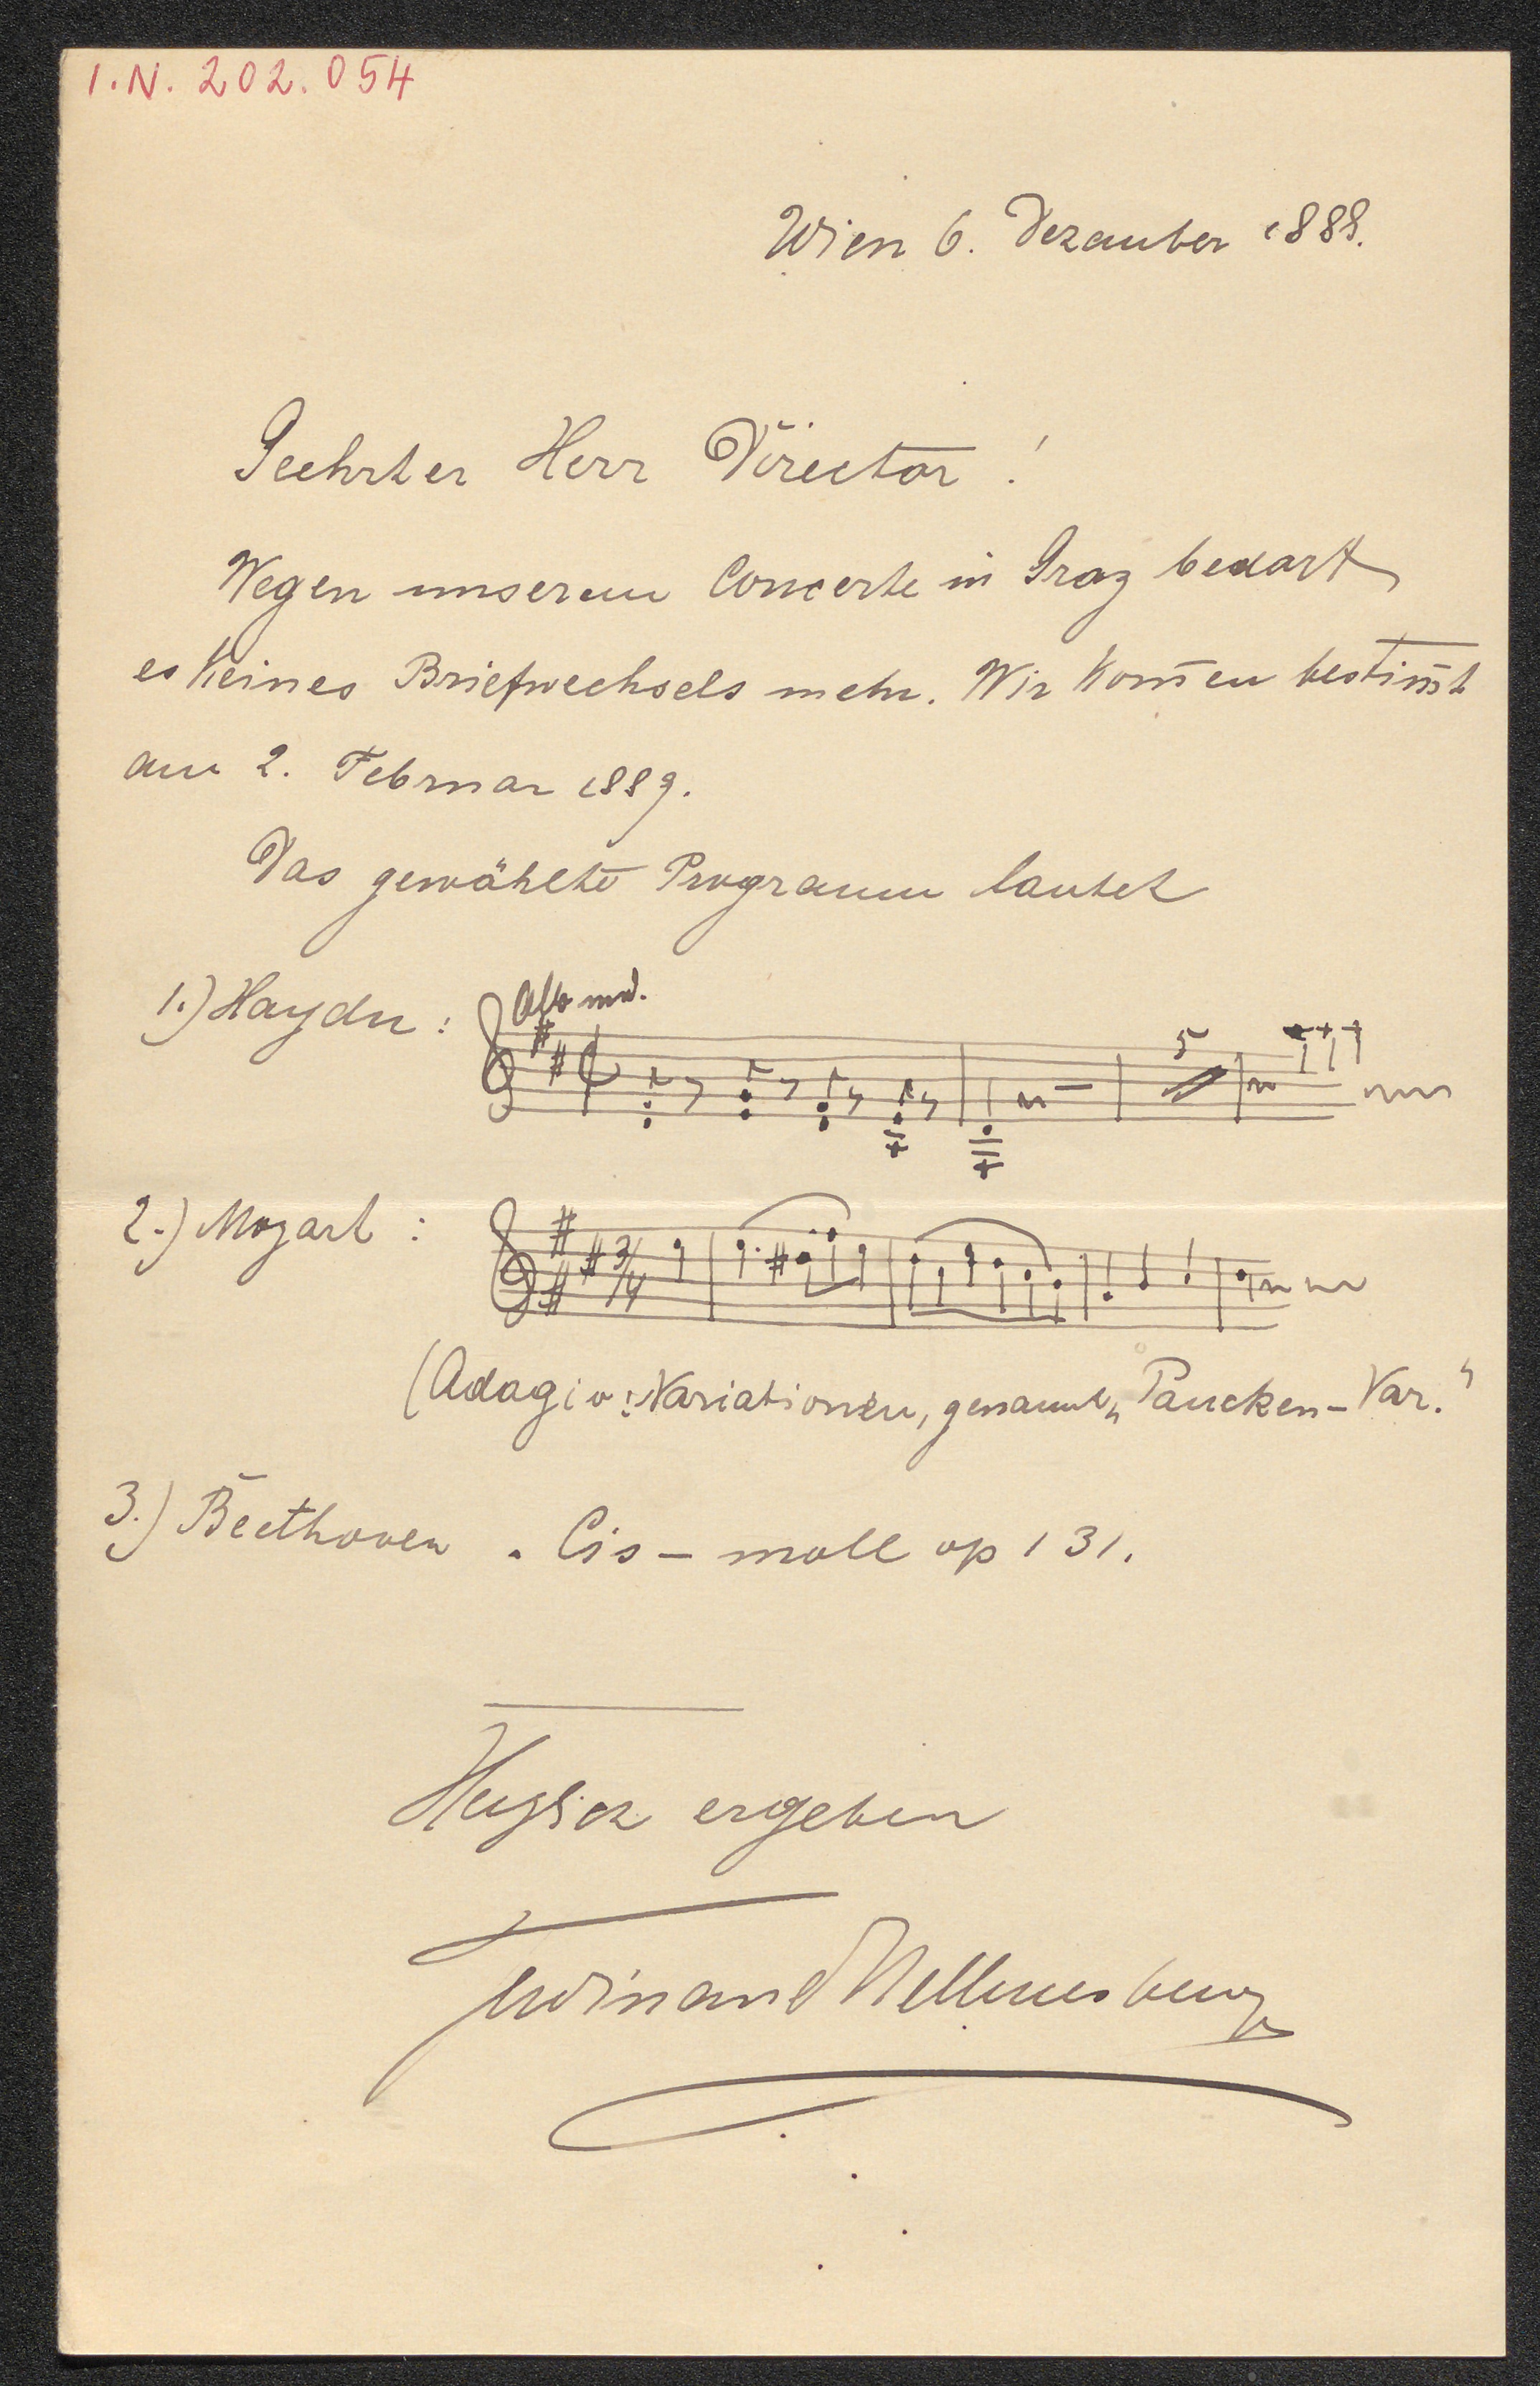 I.N. 202.054
Wien 6. Dezember 1888.
Geehrter Herr Director!
Wegen unserem Concerte in Graz bedarf
es keines Briefwechsels mehr. Wir kom̄en bestim̄t
am 2. Februar 1889.
Das gewählte Programm lautet
1.) Haydn :
Allo mod.
5
2.) Mozart :
3/4
(Adagio: Variationen, genannt „Paucken-Var."
3.) Beethoven . Cis-moll op 131.
ergeben
Ferdinand Hellmesberger